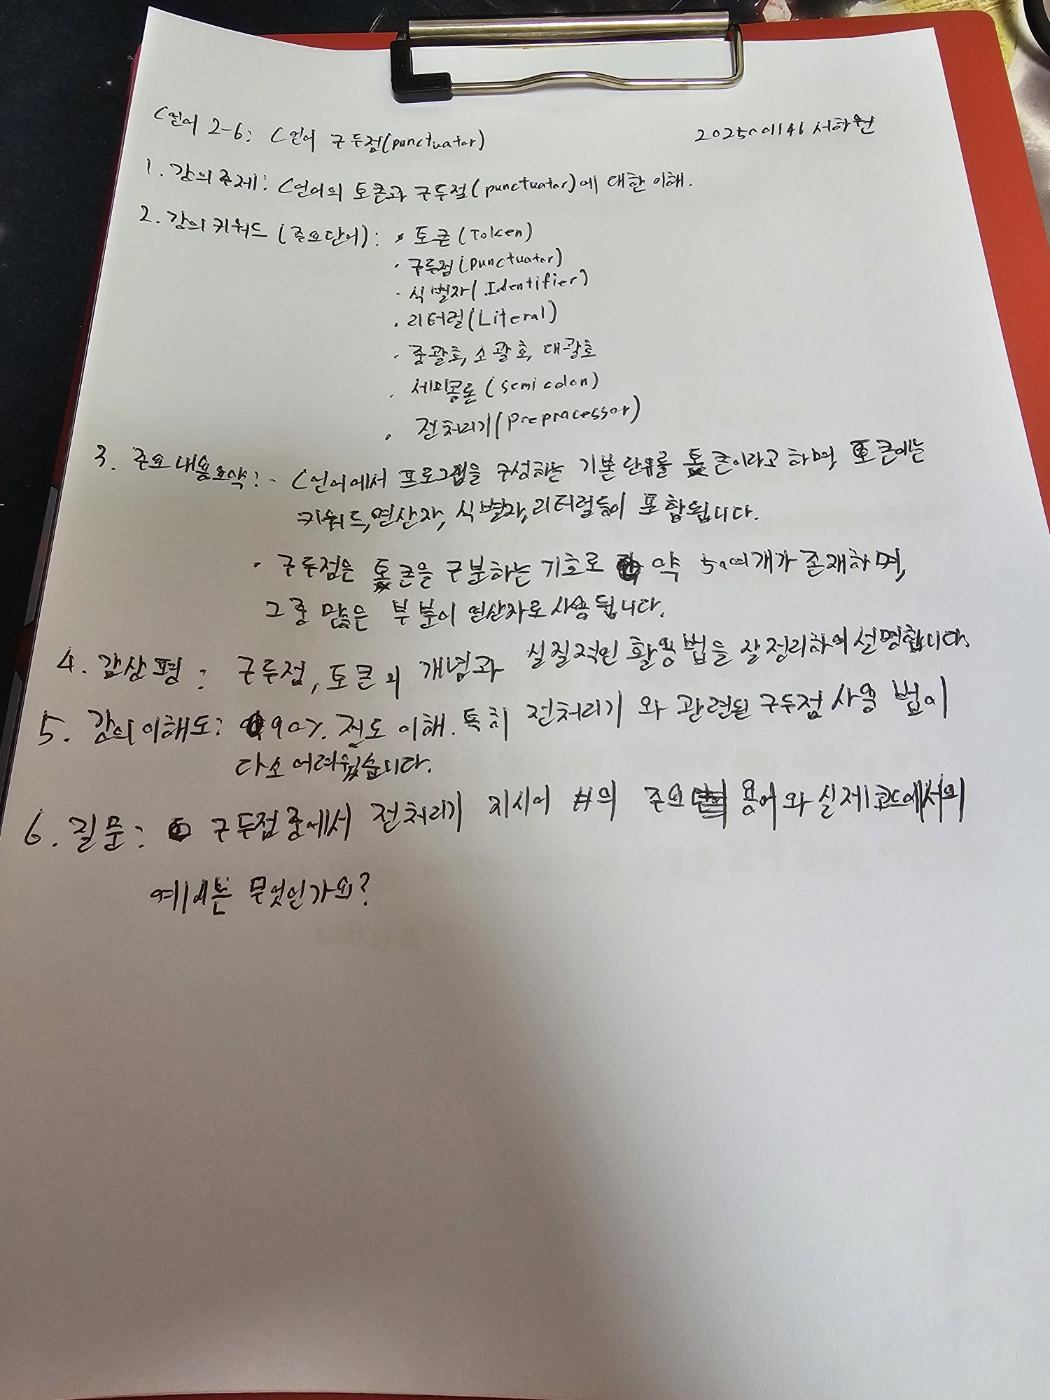 C언어 2-6: C언어 구두점(punctuator)
202500146 서하원
1. 강의주제: C언어의 토큰과 구두점(punctuator)에 대한 이해.
2. 강의 키워드 (주요단어): · 토큰(Token)
· 구두점(punctuator)
· 식별자(Identifier)
· 리터럴(Literal)
· 중괄호, 소괄호, 대괄호
· 세미콜론(semicolon)
· 전처리기(Preprocessor)
3. 주요내용요약: · C언어에서 프로그램을 구성하는 기본 단위를 토큰이라고 하며, 토큰에는
키워드,연산자, 식별자,리터럴등이 포함됩니다.
· 구두점은 토큰을 구분하는 기호로 약 50여개가 존재하며,
그중 많은 부분이 연산자로 사용됩니다.
4. 감상평: 구두점, 토큰의 개념과 실질적인 활용법을 잘정리하여 설명합니다.
5. 강의이해도: 90% 정도 이해. 특히 전처리기 와 관련된 구두점 사용 법이
다소 어려웠습니다.
6. 질문: 구두점 중에서 전처리기 지시어 #의 주요 용어와 실제코드에서의
예시는 무엇인가요?